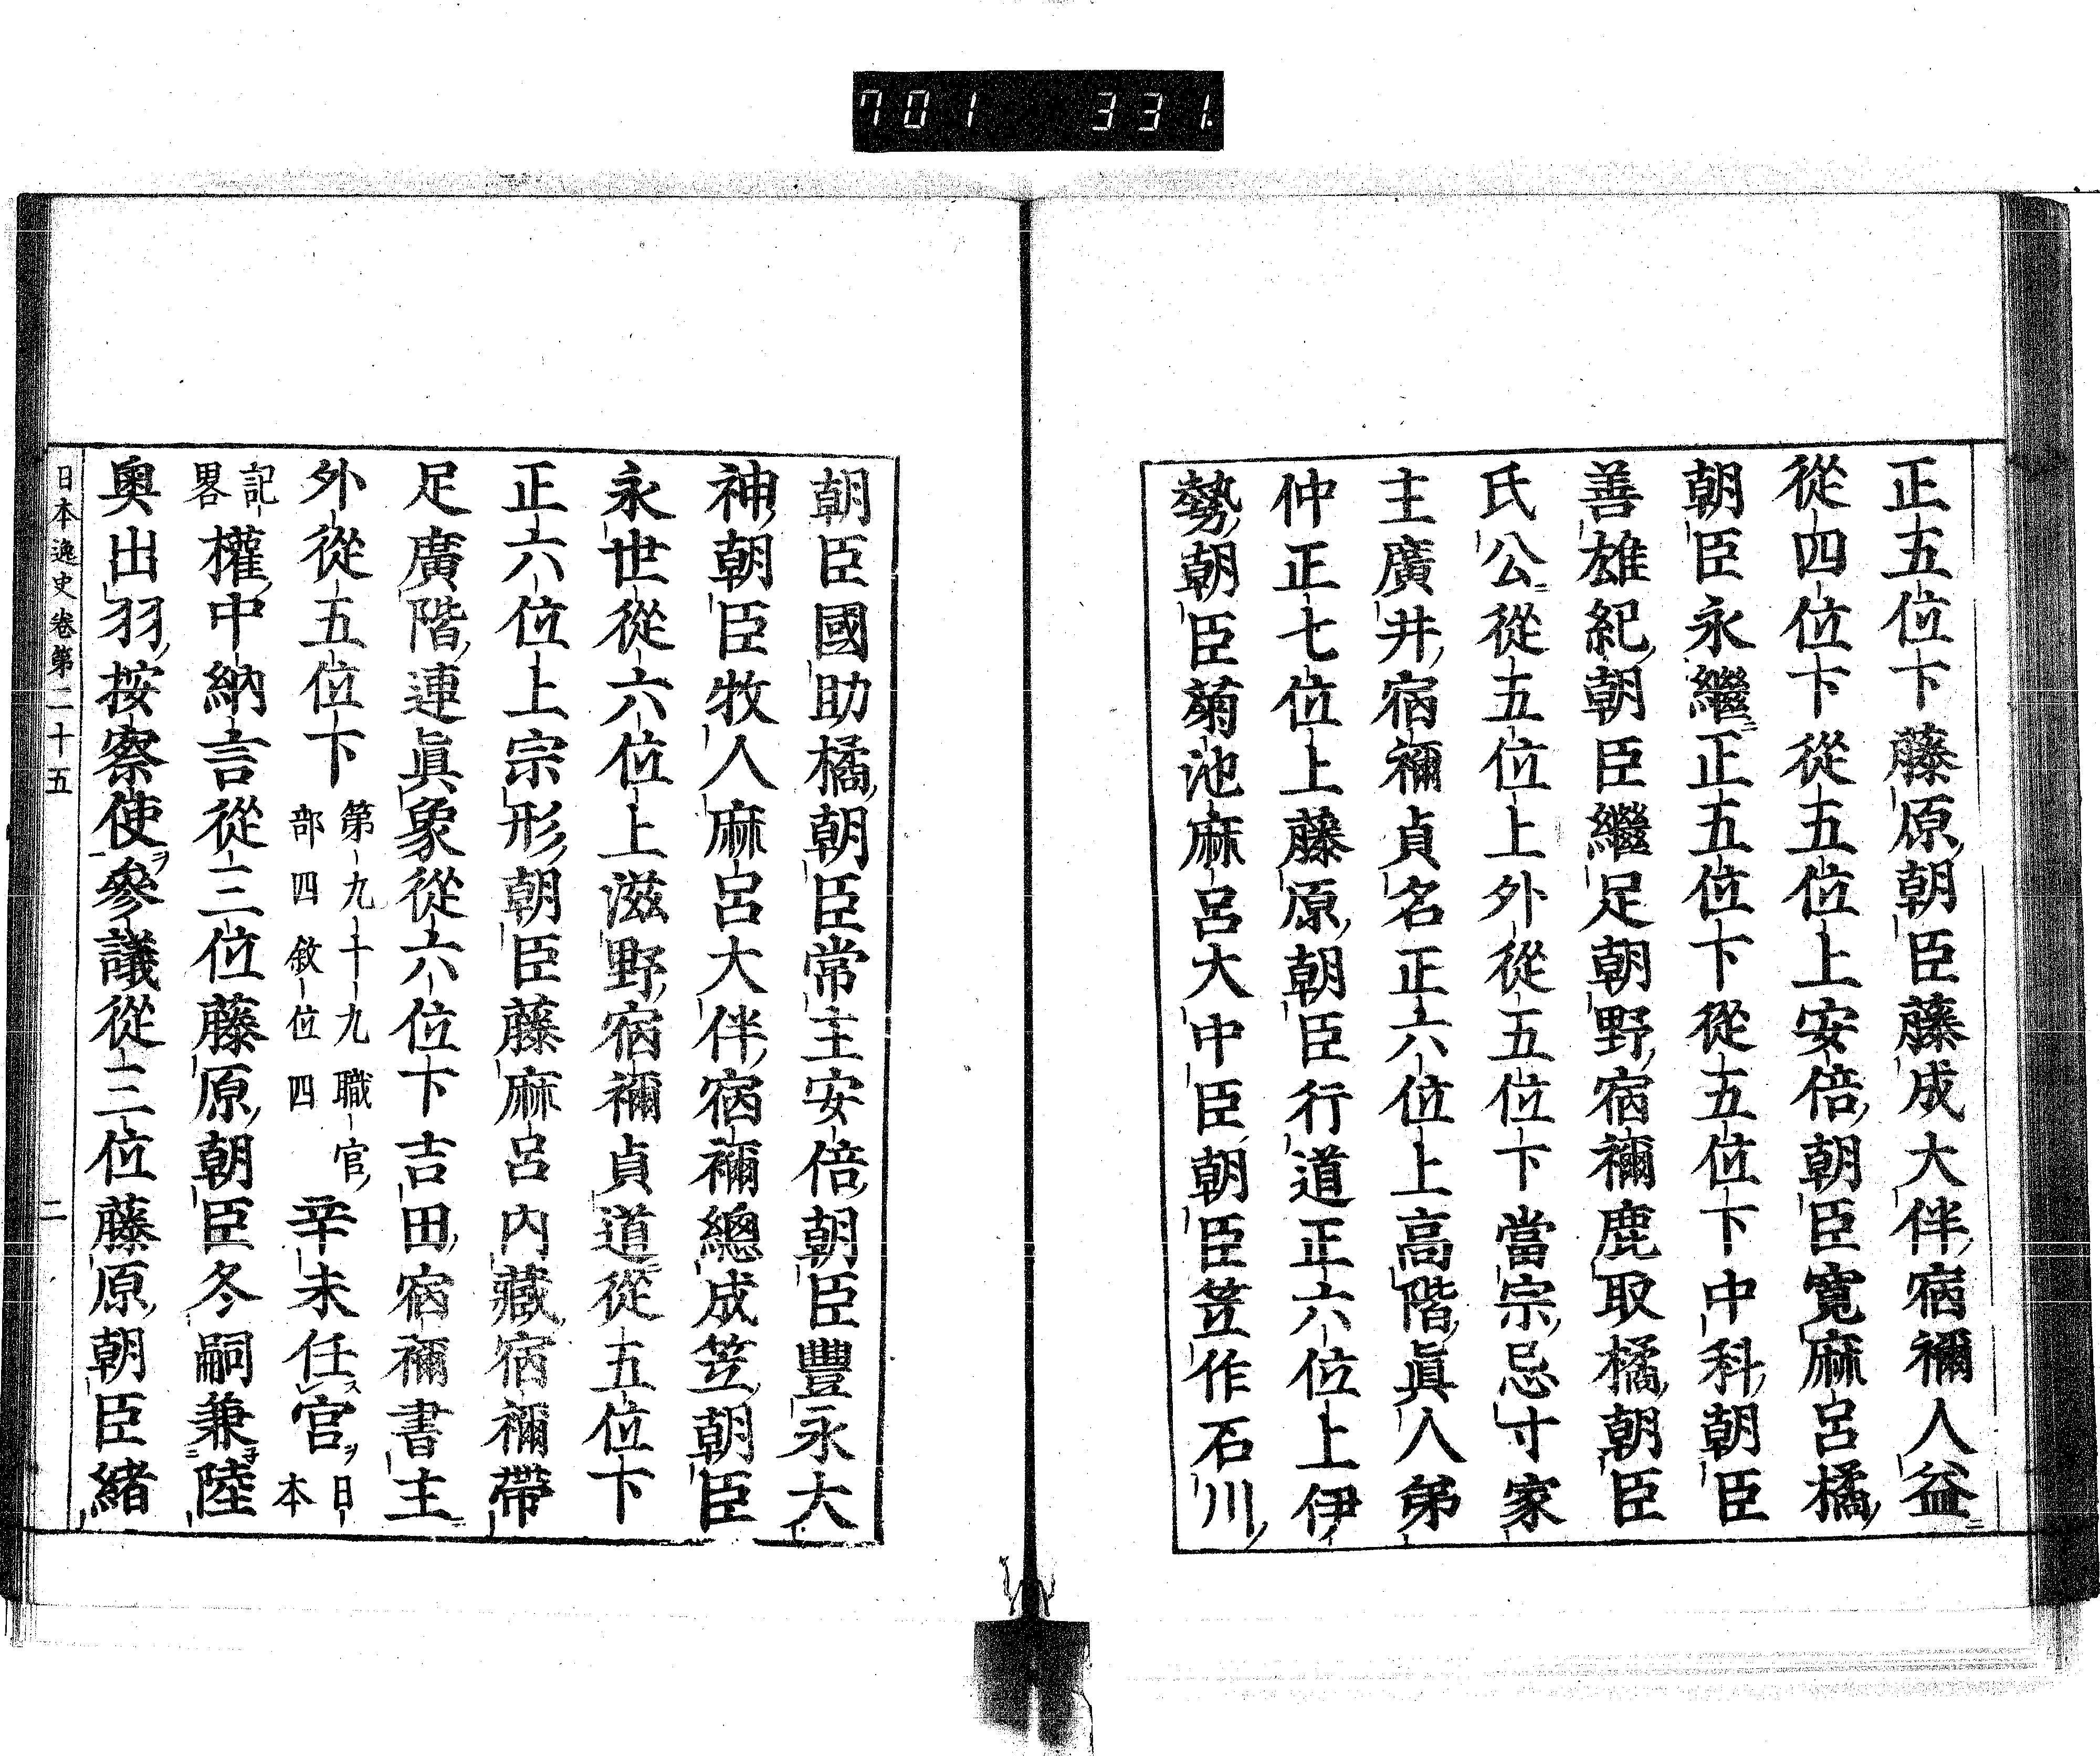 701 331.
正五位下藤原朝臣藤成大伴宿禰人益
從四位下從五位上安倍朝臣寬麻呂橘
朝臣永繼正五位下從五位下中科朝臣
善雄紀朝臣繼足朝野宿禰鹿取橘朝臣
氏公從五位上外從五位下當宗忌寸家
主廣井宿禰貞名正六位上高階眞人弟
仲正七位上藤原朝臣行道正六位上伊
勢朝臣菊池麻呂大中臣朝臣笠作石川
朝臣國助橘朝臣常主安倍朝臣豐永大
神朝臣牧人麻呂大伴宿禰總成笠朝臣
永世從六位上滋野宿禰貞道從五位下
正六位上宗形朝臣藤麻呂內藏宿禰帶
足廣階連眞象從六位下吉田宿禰書主
外從五位下第九十九職官部四敘位四辛未任官日本
記畧權中納言從三位藤原朝臣冬嗣兼陸
奧出羽按察使參議從三位藤原朝臣緒
日本逸史卷第二十五 二